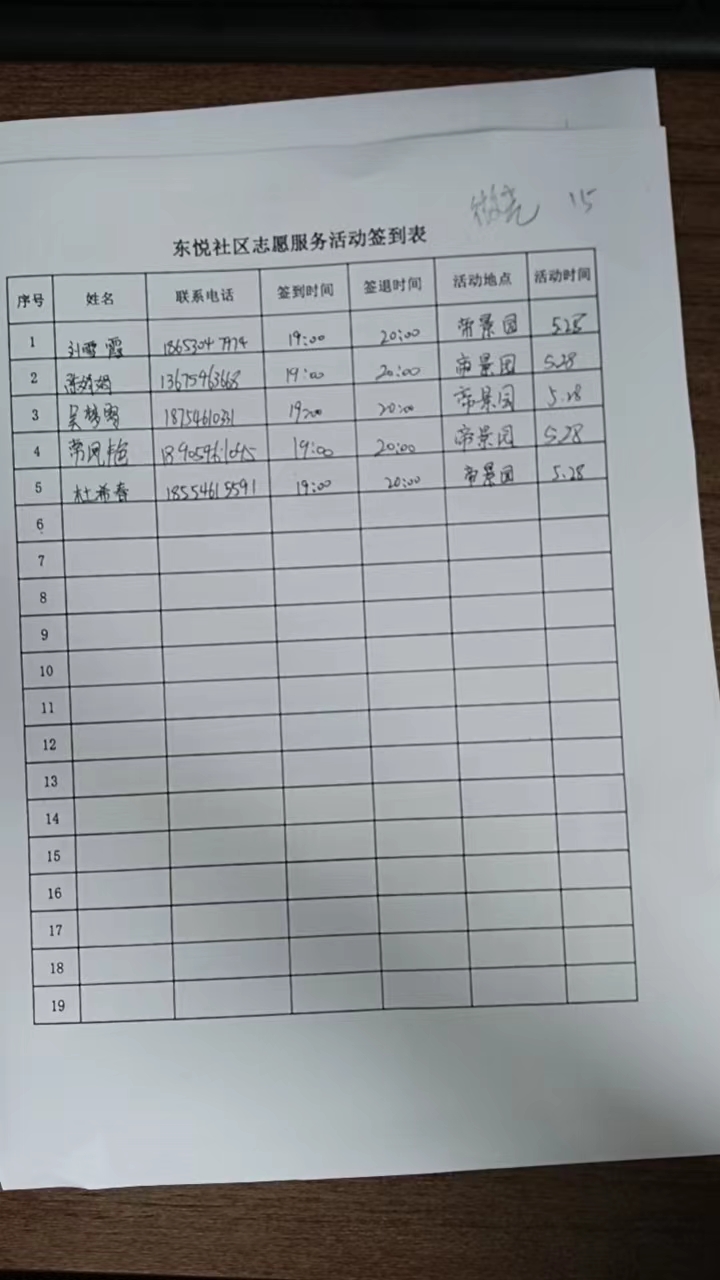 15
东悦社区志愿服务活动签到表
序号 姓名 联系电话 签到时间 签退时间 活动地点 活动时间
1 刘雪霞 19:00 20:00 帝景园 5.28
2 13675463668 19:00 20:00 帝景园 5.28
3 吴梦雪 19:00 20:00 帝景园 5.28
4 常凤艳 19:00 20:00 帝景园 5.28
5 杜希春 18554615591 19:00 20:00 帝景园 5.28
6
7
8
9
10
11
12
13
14
15
16
17
18
19